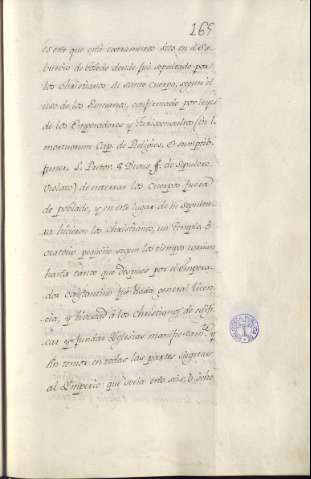 165
es este que esté cerramento sito en el Se-
burbio de Toledo donde fué sepultado por
los Christianos, su santo cuerpo, segun el
uso de los Romanos, confirmado por leyes
de los Emperadores y Jurisconsultos (in l.
mortuorum Cap. de Religios. & sumptib.
funer. L. Prætor. & Divus ff. de Sepulcro
Violato) de enterrar los Cuerpos fuera
de poblado, y en este lugar de su sepultu-
ra hicieron los Christianos, un Templo, ó
oratorio pequeño segun los tiempos corrian
hasta tanto que despues por el Empera-
dor Constantino fué dada general licen-
cia, y livertad á los Christianos de edifi-
car y fundar Yglesias manifiestam.te y
sin temor en todas las partes sugetas
al Ymperio: que seria este año, ú ocho